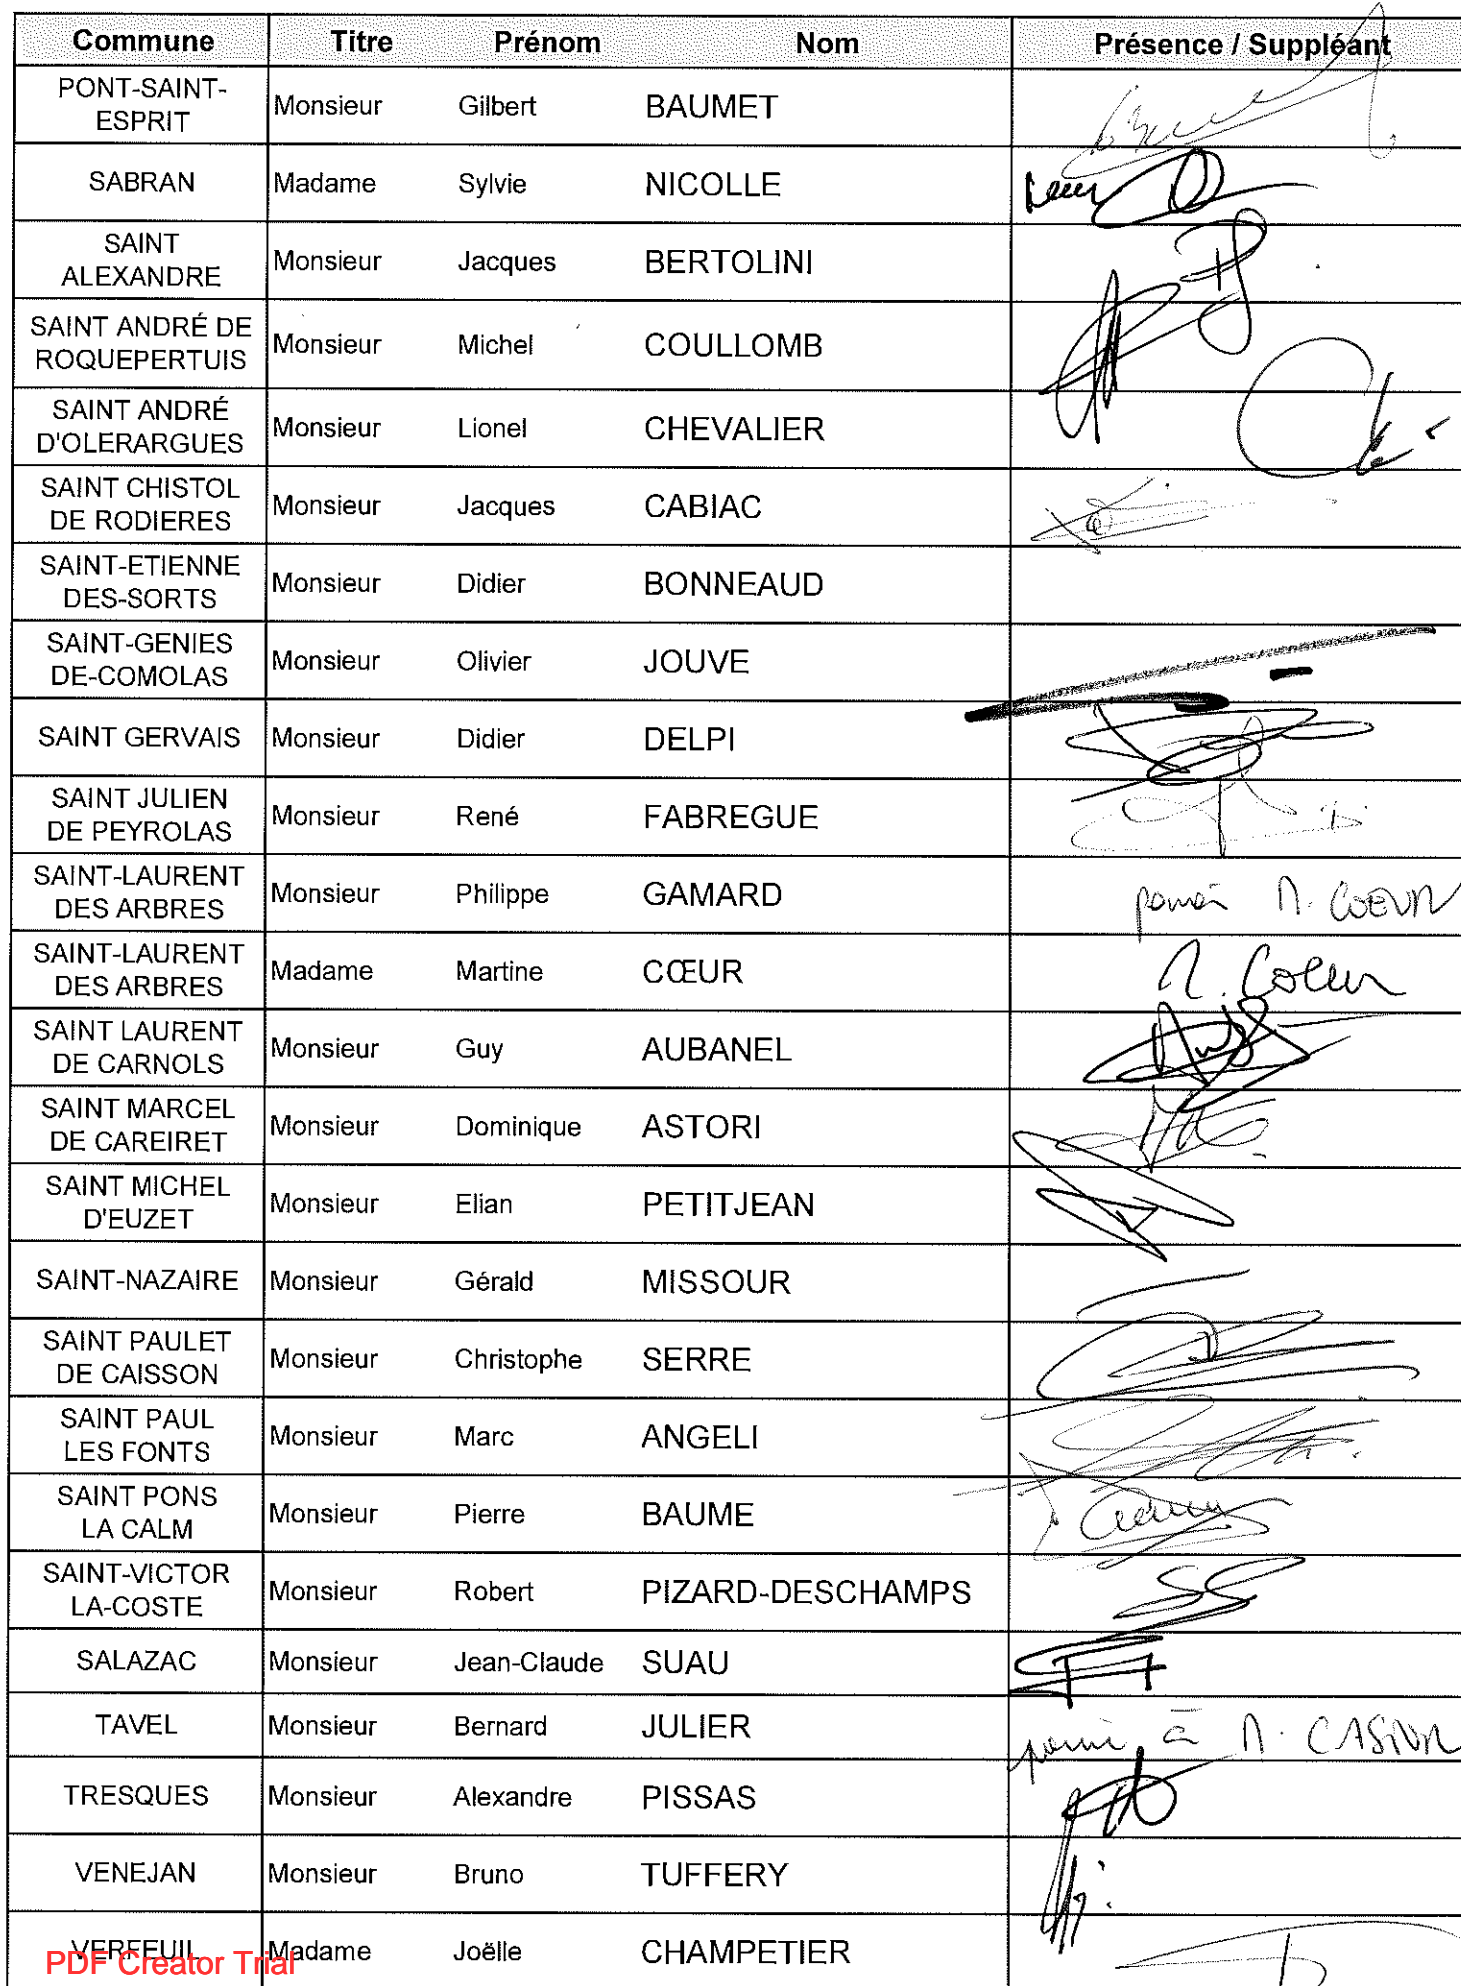 Commune Titre Prénom Nom Présence / Suppléant
PONT-SAINT-
ESPRIT Monsieur Gilbert BAUMET
SABRAN Madame Sylvie NICOLLE
SAINT
ALEXANDRE Monsieur Jacques BERTOLINI
SAINT ANDRÉ DE
ROQUEPERTUIS Monsieur Michel COULLOMB
SAINT ANDRÉ
D'OLERARGUES Monsieur Lionel CHEVALIER
SAINT CHISTOL
DE RODIERES Monsieur Jacques CABIAC
SAINT-ETIENNE
DES-SORTS Monsieur Didier BONNEAUD
SAINT-GENIES
DE-COMOLAS Monsieur Olivier JOUVE
SAINT GERVAIS Monsieur Didier DELPI
SAINT JULIEN
DE PEYROLAS Monsieur René FABREGUE
SAINT-LAURENT
DES ARBRES Monsieur Philippe GAMARD M. COEUR
SAINT-LAURENT
DES ARBRES Madame Martine CŒUR M. Coeur
SAINT LAURENT
DE CARNOLS Monsieur Guy AUBANEL
SAINT MARCEL
DE CAREIRET Monsieur Dominique ASTORI
SAINT MICHEL
D'EUZET Monsieur Elian PETITJEAN
SAINT-NAZAIRE Monsieur Gérald MISSOUR
SAINT PAULET
DE CAISSON Monsieur Christophe SERRE
SAINT PAUL
LES FONTS Monsieur Marc ANGELI
SAINT PONS
LA CALM Monsieur Pierre BAUME
SAINT-VICTOR
LA-COSTE Monsieur Robert PIZARD-DESCHAMPS
SALAZAC Monsieur Jean-Claude SUAU
TAVEL Monsieur Bernard JULIER à M.
TRESQUES Monsieur Alexandre PISSAS
VENEJAN Monsieur Bruno TUFFERY
VERFEUIL Madame Joëlle CHAMPETIER
PDF Creator Trial